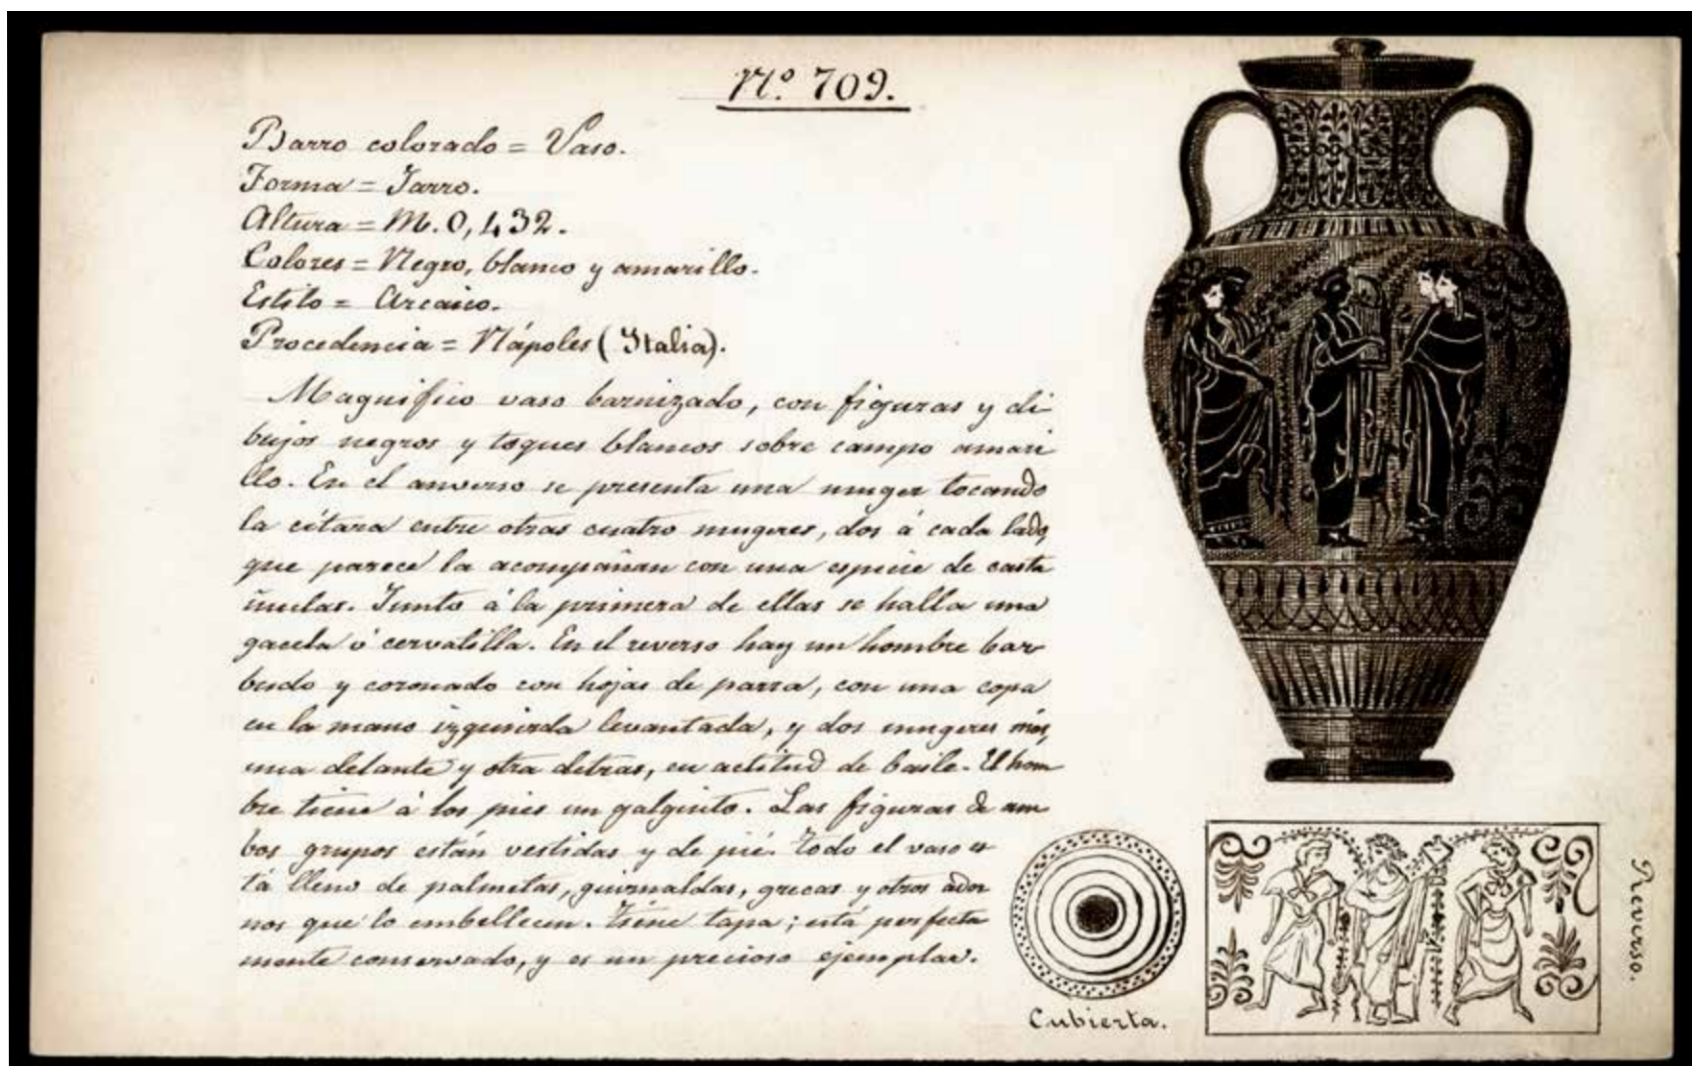 Nº 709.
Barro colorado = Vaso.
Forma = Jarro.
Altura = M. 0,432.
Colores = Negro, blanco y amarillo.
Estilo = Arcaico.
Procedencia = Nápoles (Italia).
Magnífico vaso barnizado, con figuras y di
bujos negros y toques blancos sobre campo amari
llo. En el anverso se presenta una muger tocando
la cítara entre otras cuatro mugeres, dos á cada lado,
que parece la acompañan con una especie de casta
ñuelas. Junto á la primera de ellas se halla una
gacela ó cervatilla. En el reverso hay un hombre bar
budo y coronado con hojas de parra, con una copa
en la mano izquierda levantada, y dos mugeres más,
una delante y otra detras, en actitud de baile. El hom
bre tiene á los pies un galguito. Las figuras de am
bos grupos están vestidas y de pié. Todo el vaso es
tá lleno de palmetas, guirnaldas, grecas y otros ador
nos que lo embellecen. Tiene tapa; está perfecta
mente conservado, y es un precioso ejemplar.
Cubierta.
Reverso.